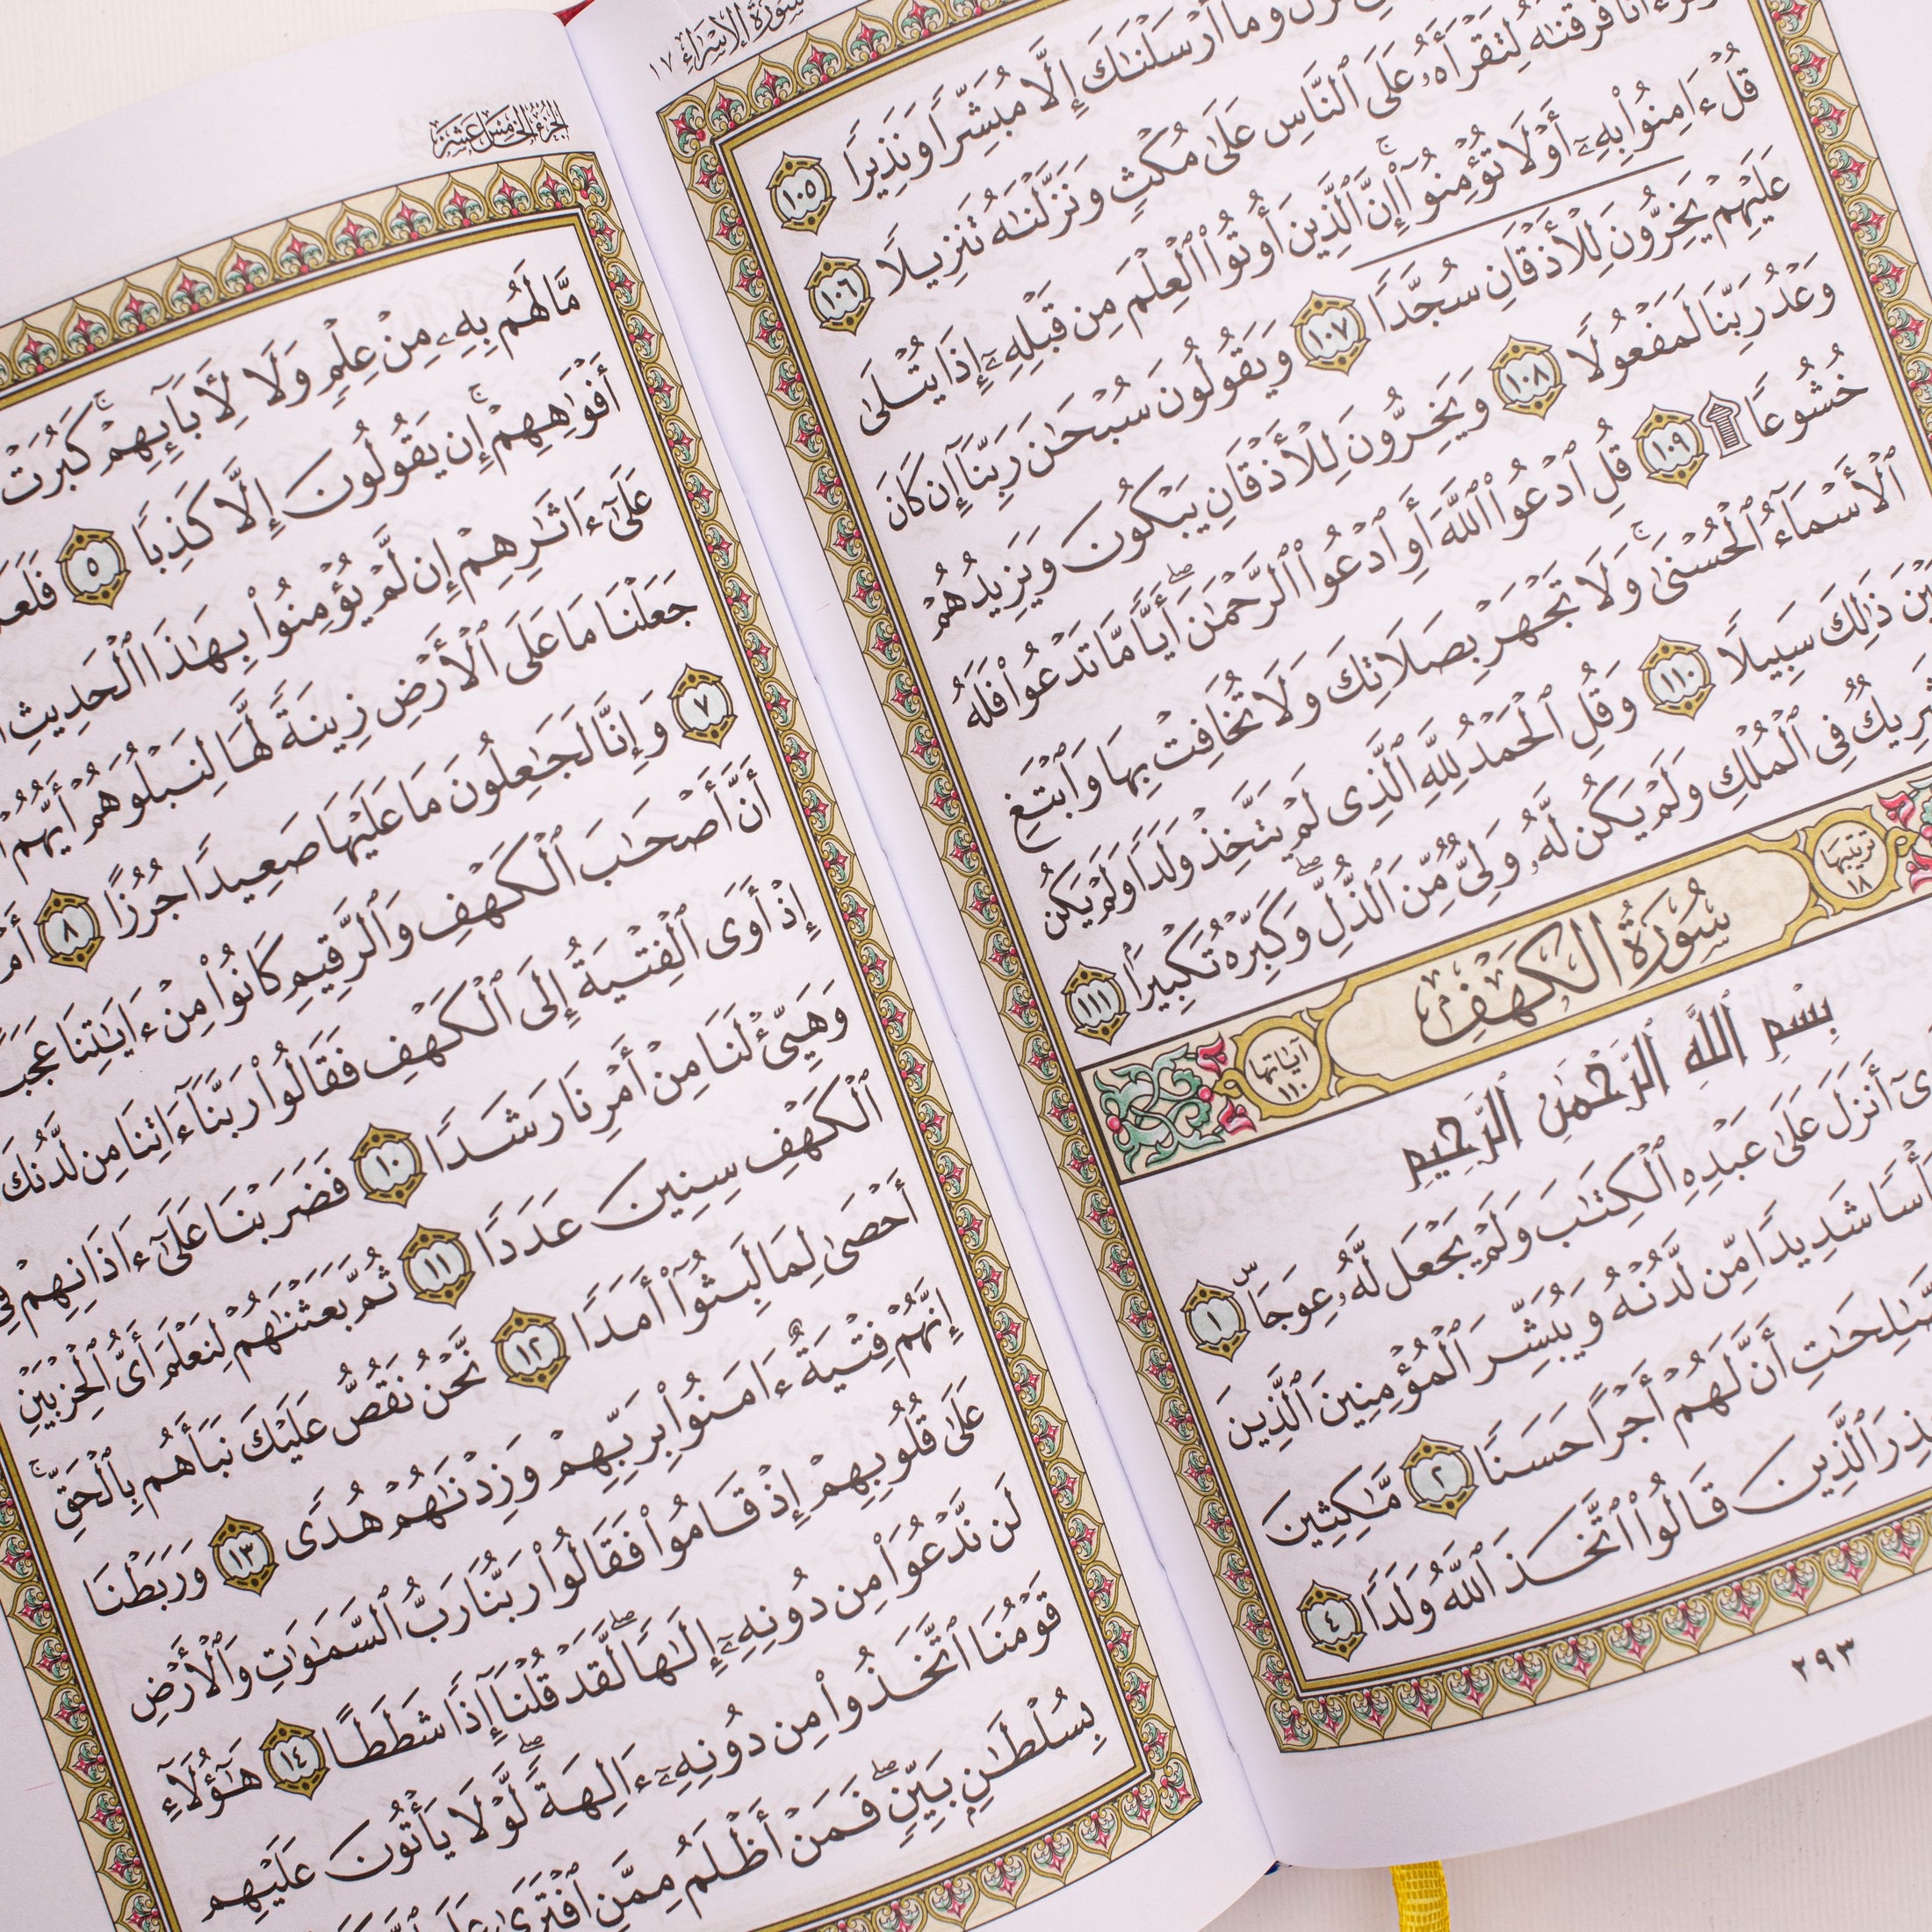 سُورَةُ الإِسْرَاءِ ١٧
وَمَآ أَرْسَلْنَٰكَ إِلَّا مُبَشِّرًا وَنَذِيرًا ١٠٥
فَرَقْنَٰهُ لِتَقْرَأَهُۥ عَلَى ٱلنَّاسِ عَلَىٰ مُكْثٍ وَنَزَّلْنَٰهُ تَنزِيلًا ١٠٦
قُلْ ءَامِنُوا۟ بِهِۦٓ أَوْ لَا تُؤْمِنُوٓا۟ ۚ إِنَّ ٱلَّذِينَ أُوتُوا۟ ٱلْعِلْمَ مِن قَبْلِهِۦٓ إِذَا يُتْلَىٰ
عَلَيْهِمْ يَخِرُّونَ لِلْأَذْقَانِ سُجَّدًا ١٠٧ وَيَقُولُونَ سُبْحَٰنَ رَبِّنَآ إِن كَانَ
وَعْدُ رَبِّنَا لَمَفْعُولًا ١٠٨ وَيَخِرُّونَ لِلْأَذْقَانِ يَبْكُونَ وَيَزِيدُهُمْ
خُشُوعًا ۩ ١٠٩ قُلِ ٱدْعُوا۟ ٱللَّهَ أَوِ ٱدْعُوا۟ ٱلرَّحْمَٰنَ ۖ أَيًّا مَّا تَدْعُوا۟ فَلَهُ
ٱلْأَسْمَآءُ ٱلْحُسْنَىٰ ۚ وَلَا تَجْهَرْ بِصَلَاتِكَ وَلَا تُخَافِتْ بِهَا وَٱبْتَغِ
بَيْنَ ذَٰلِكَ سَبِيلًا ١١٠ وَقُلِ ٱلْحَمْدُ لِلَّهِ ٱلَّذِى لَمْ يَتَّخِذْ وَلَدًا وَلَمْ يَكُن
شَرِيكٌ فِى ٱلْمُلْكِ وَلَمْ يَكُن لَّهُۥ وَلِىٌّ مِّنَ ٱلذُّلِّ ۖ وَكَبِّرْهُ تَكْبِيرًۢا ١١١
ترتيبها ١٨ سُورَةُ الكَهْفِ آياتها ١١٠
بِسْمِ ٱللَّهِ ٱلرَّحْمَٰنِ ٱلرَّحِيمِ
أَنزَلَ عَلَىٰ عَبْدِهِ ٱلْكِتَٰبَ وَلَمْ يَجْعَل لَّهُۥ عِوَجَا ۜ ١
شَدِيدًا مِّن لَّدُنْهُ وَيُبَشِّرَ ٱلْمُؤْمِنِينَ ٱلَّذِينَ
أَنَّ لَهُمْ أَجْرًا حَسَنًا ٢ مَّٰكِثِينَ
ٱلَّذِينَ قَالُوا۟ ٱتَّخَذَ ٱللَّهُ وَلَدًا ٤
٢٩٣
الجزء الخامس عشر
مَّا لَهُم بِهِۦ مِنْ عِلْمٍ وَلَا لِـَٔابَآئِهِمْ ۚ كَبُرَتْ
أَفْوَٰهِهِمْ ۚ إِن يَقُولُونَ إِلَّا كَذِبًا ٥
عَلَىٰٓ ءَاثَٰرِهِمْ إِن لَّمْ يُؤْمِنُوا۟ بِهَٰذَا ٱلْحَدِيثِ
جَعَلْنَا مَا عَلَى ٱلْأَرْضِ زِينَةً لَّهَا لِنَبْلُوَهُمْ أَيُّهُمْ
٧ وَإِنَّا لَجَٰعِلُونَ مَا عَلَيْهَا صَعِيدًا جُرُزًا ٨
أَنَّ أَصْحَٰبَ ٱلْكَهْفِ وَٱلرَّقِيمِ كَانُوا۟ مِنْ ءَايَٰتِنَا عَجَبًا
إِذْ أَوَى ٱلْفِتْيَةُ إِلَى ٱلْكَهْفِ فَقَالُوا۟ رَبَّنَآ ءَاتِنَا مِن لَّدُنكَ
وَهَيِّئْ لَنَا مِنْ أَمْرِنَا رَشَدًا ١٠ فَضَرَبْنَا عَلَىٰٓ ءَاذَانِهِمْ فِى
ٱلْكَهْفِ سِنِينَ عَدَدًا ١١ ثُمَّ بَعَثْنَٰهُمْ لِنَعْلَمَ أَىُّ ٱلْحِزْبَيْنِ
أَحْصَىٰ لِمَا لَبِثُوٓا۟ أَمَدًا ١٢ نَّحْنُ نَقُصُّ عَلَيْكَ نَبَأَهُم بِٱلْحَقِّ ۚ
إِنَّهُمْ فِتْيَةٌ ءَامَنُوا۟ بِرَبِّهِمْ وَزِدْنَٰهُمْ هُدًى ١٣ وَرَبَطْنَا
عَلَىٰ قُلُوبِهِمْ إِذْ قَامُوا۟ فَقَالُوا۟ رَبُّنَا رَبُّ ٱلسَّمَٰوَٰتِ وَٱلْأَرْضِ
لَن نَّدْعُوَا۟ مِن دُونِهِۦٓ إِلَٰهًا ۖ لَّقَدْ قُلْنَآ إِذًا شَطَطًا ١٤ هَٰٓؤُلَآءِ
قَوْمُنَا ٱتَّخَذُوا۟ مِن دُونِهِۦٓ ءَالِهَةً ۖ لَّوْلَا يَأْتُونَ عَلَيْهِم
بِسُلْطَٰنٍۭ بَيِّنٍ ۖ فَمَنْ أَظْلَمُ مِمَّنِ ٱفْتَرَىٰ